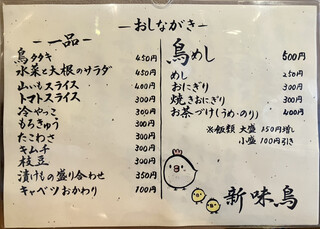 －おしながき－
－一品－
鳥タタキ 450円
水菜と大根のサラダ 450円
山いもスライス 400円
トマトスライス 300円
冷やっこ 300円
もろきゅう 300円
たこわさ 300円
キムチ 300円
枝豆 300円
漬けもの盛り合わせ 350円
キャベツおかわり 100円
鳥めし 500円
めし 250円
おにぎり 300円
焼きおにぎり 300円
お茶づけ(うめ・のり) 400円
※飯類 大盛 150円増し
小盛 100円引き
新味鳥